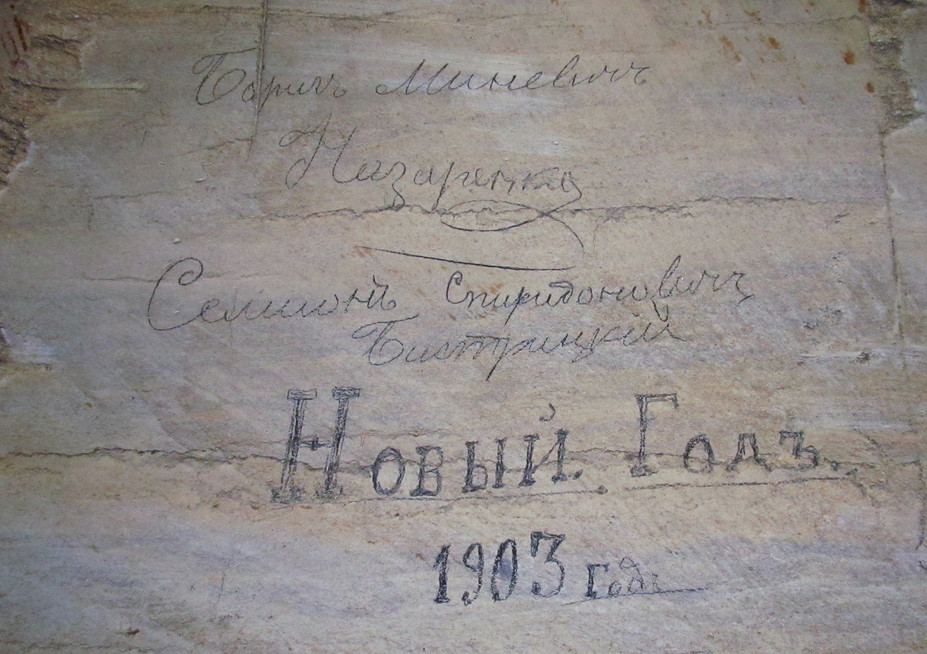 Минквичъ
Назаренко
Семионъ Спиридоновичъ
Бистрицкій
Новый Годъ.
1903 годъ